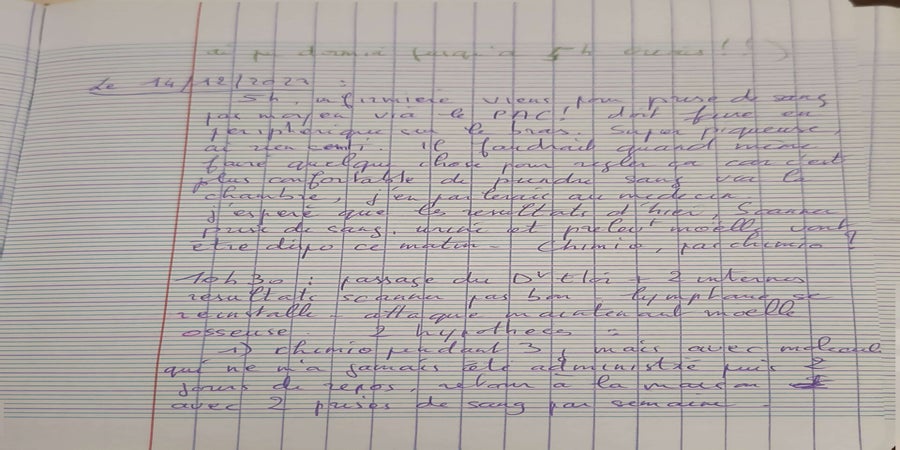 ai pu dormir jusqu'à 5h
Le 14/12/2022 :
5h, infirmière viens pour prise de sang
pas moyen via le PAC! doit faire en
periphérique sur le bras. Super piqueuse,
ai rien senti. il faudrait quand même
faire quelque chose pour régler ça car c'est
plus confortable de prendre sang via la
chambre, j'en parlerai au médecin
j'espère que les resultats d'hier, Scanner
prise de sang, urine et prelevt moëlle vont
être dispo ce matin - Chimio, pas chimio?
10h30 : passage du Dr + 2 internes
resultats scanner pas bon - lymphome se
réinstalle - attaque maintenant moëlle
osseuse. 2 hypothèses :
1) chimio pendant 3 j, mais avec
qui ne m'a jamais été administré puis 2
jours de repos, retour à la maison
avec 2 prises de sang par semaine -